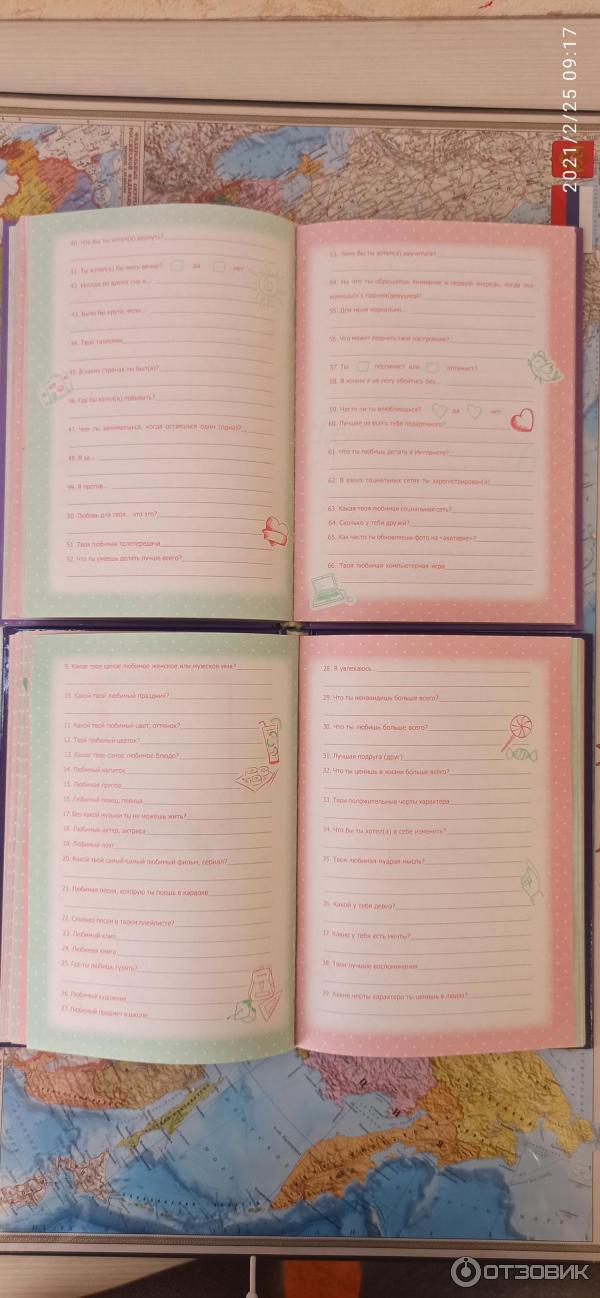 2021/2/25 09:17
40. Что бы ты хотел(а) вернуть?
41. Ты хотел(а) бы жить вечно? да нет
42. Иногда во время сна я...
43. Было бы круто, если...
44. Твой талисман
45. В каких странах ты был(а)?
46. Где бы хотел(а) побывать?
47. Чем ты занимаешься, когда остаешься один (одна)?
48. Я за...
49. Я против...
50. Любовь для тебя... что это?
51. Твоя любимая телепередача
52. Что ты умеешь делать лучше всего?
53. Чему бы ты хотел(а) научиться?
54. На что ты обращаешь внимание в первую очередь, когда знакомишься с парнем(девушкой)?
55. Для меня нереально...
56. Что может поднять твое настроение?
57. Ты пессимист или оптимист?
58. В жизни я не могу обойтись без...
59. Часто ли ты влюбляешься? да нет
60. Лучшее из всего тебе подаренного?
61. Что ты любишь делать в Интернете?
62. В каких социальных сетях ты зарегистрирован(а)
63. Какая твоя любимая социальная сеть?
64. Сколько у тебя друзей?
65. Как часто ты обновляешь фото на «аватарке»?
66. Твоя любимая компьютерная игра
9. Какое твое самое любимое женское или мужское имя?
10. Какой твой любимый праздник?
11. Какой твой любимый цвет, оттенок?
12. Твой любимый цветок?
13. Какое твое самое любимое блюдо?
14. Любимый напиток
15. Любимая группа
16. Любимый певец, певица
17. Без какой музыки ты не можешь жить?
18. Любимый актер, актриса
19. Любимый поэт
20. Какой твой самый-самый любимый фильм, сериал?
21. Любимая песня, которую ты поешь в караоке
22. Сколько песен в твоем плейлисте?
23. Любимый клип
24. Любимая книга
25. Где ты любишь гулять?
26. Любимый художник
27. Любимый предмет в школе
28. Я увлекаюсь
29. Что ты ненавидишь больше всего?
30. Что ты любишь больше всего?
31. Лучшая подруга (друг)
32. Что ты ценишь в жизни больше всего?
33. Твои положительные черты характера
34. Что бы ты хотел(а) в себе изменить?
35. Твоя любимая мудрая мысль?
36. Какой у тебя девиз?
37. Какие у тебя есть мечты?
38. Твои лучшие воспоминания
39. Какие черты характера ты ценишь в людях?
ОТЗОВИК